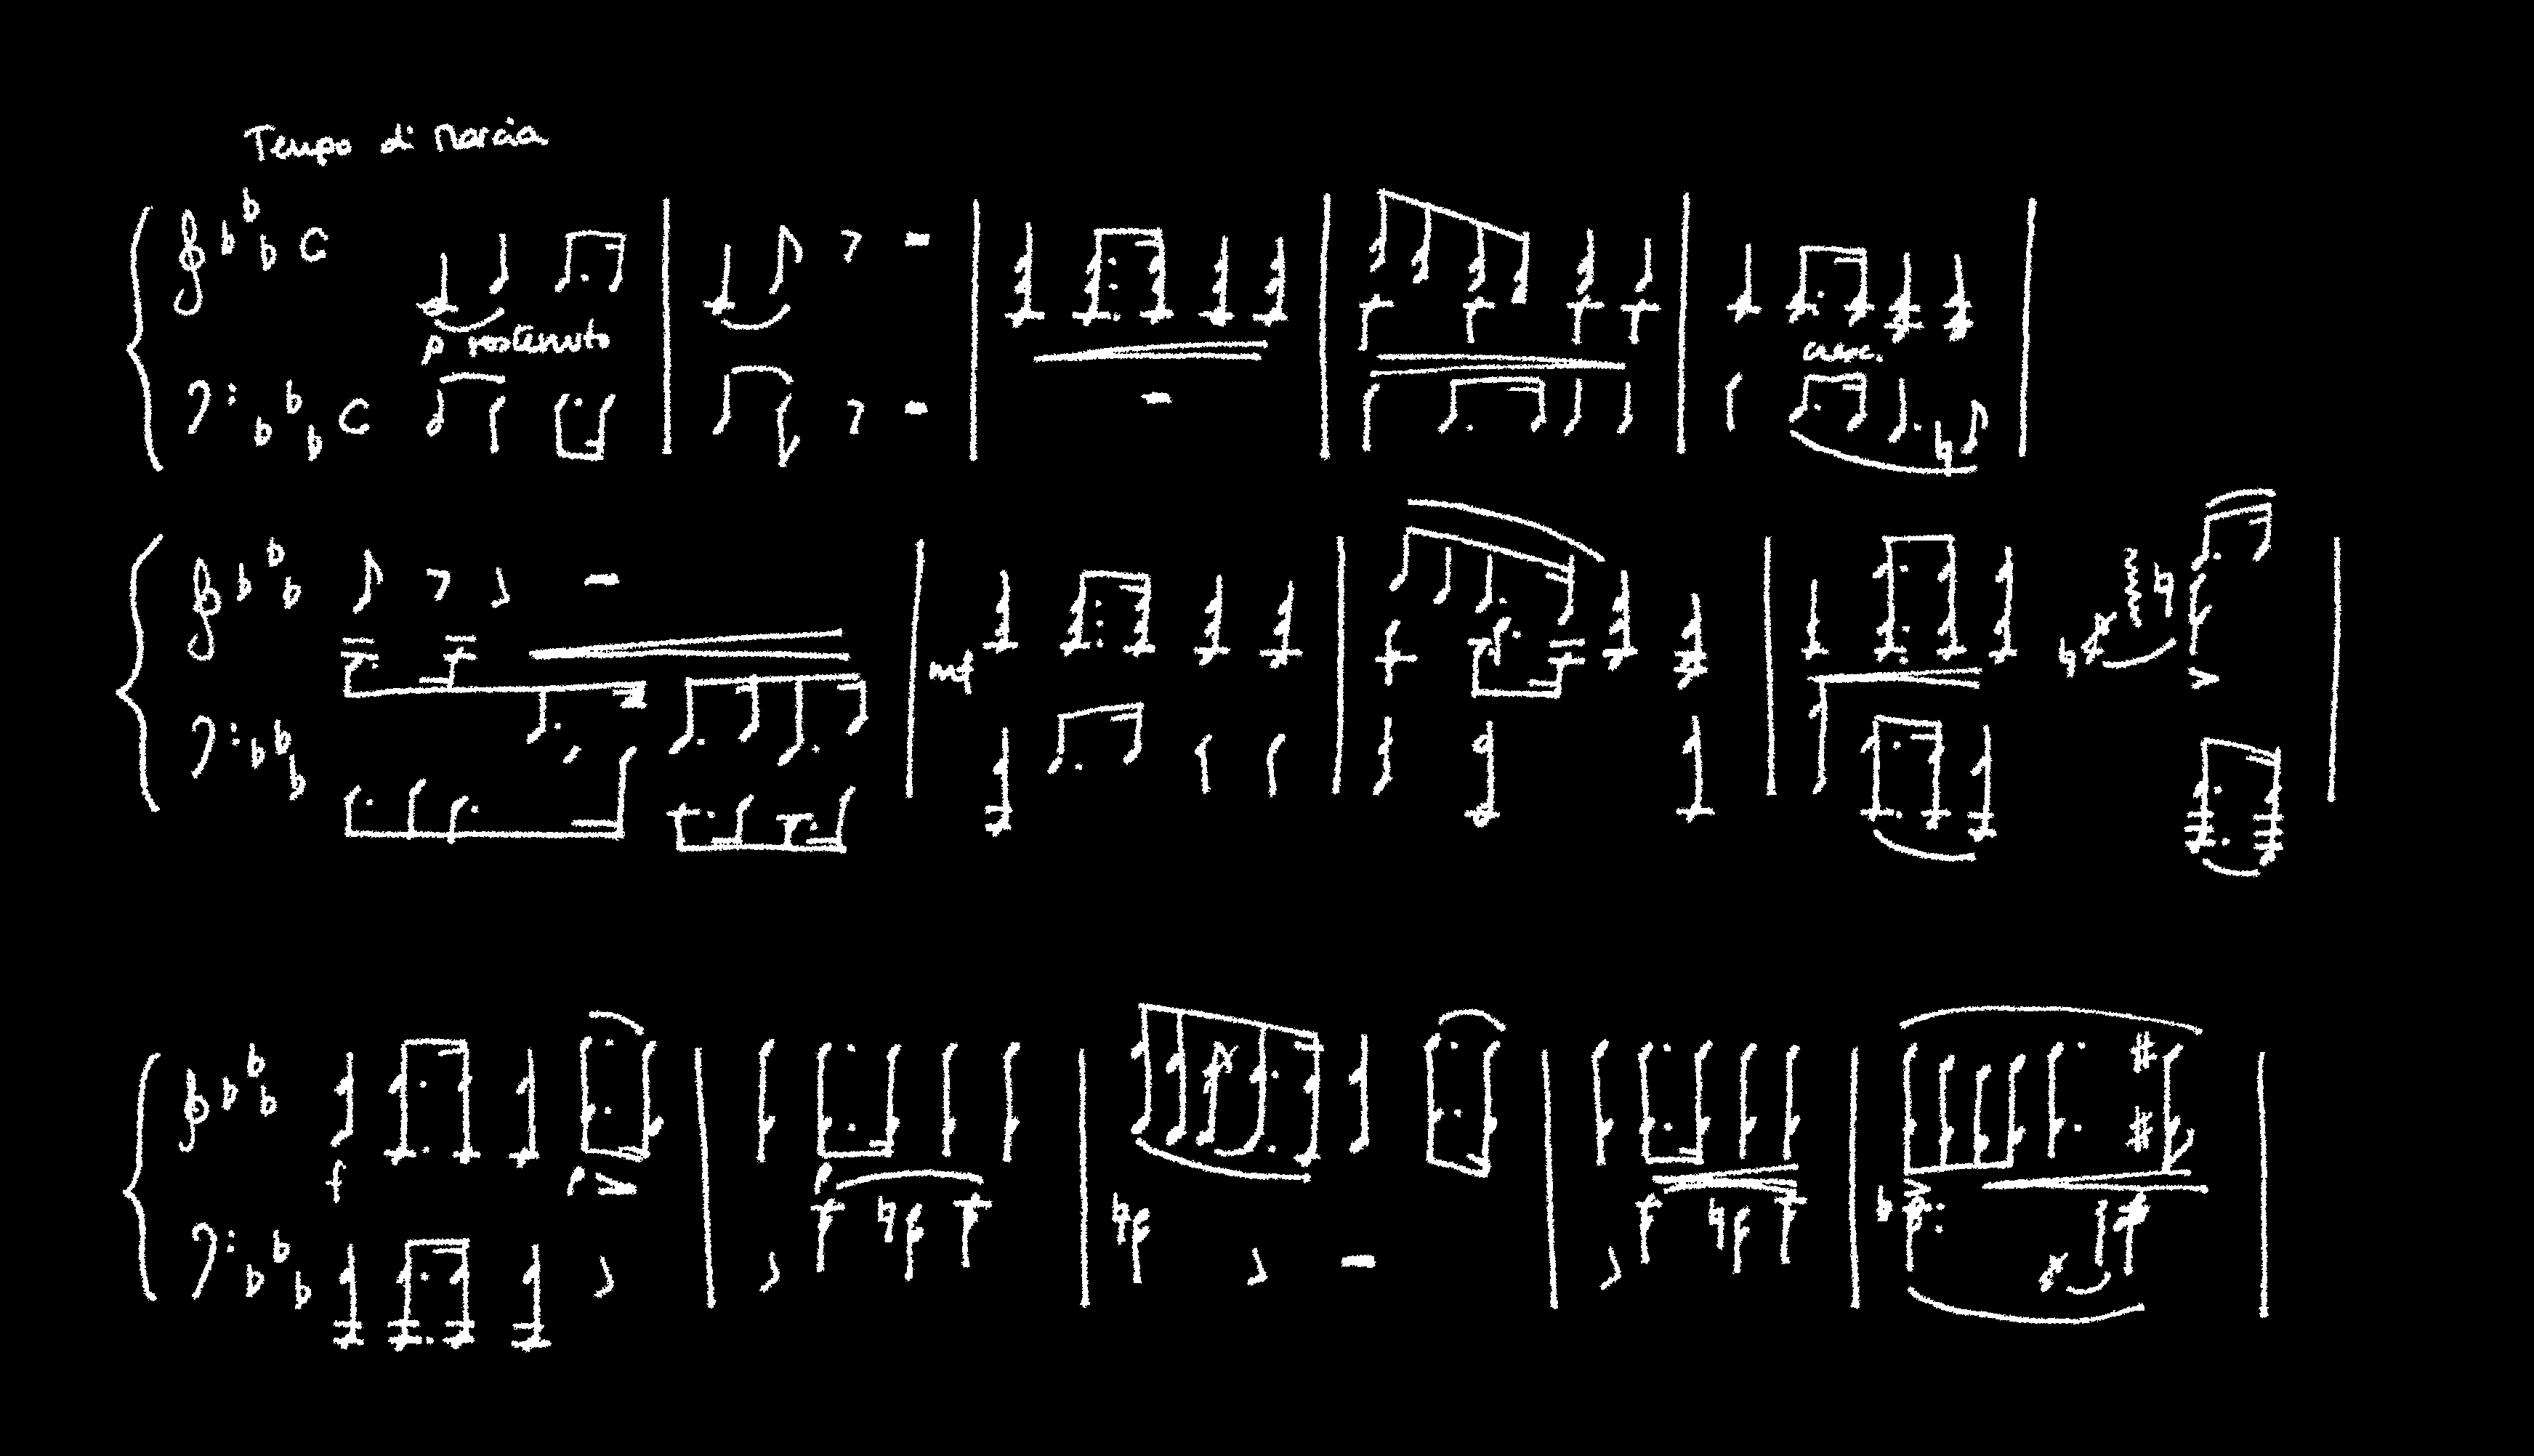 Tempo di Marcia
C
p sostenuto
C
cresc.
mf
f
p
p